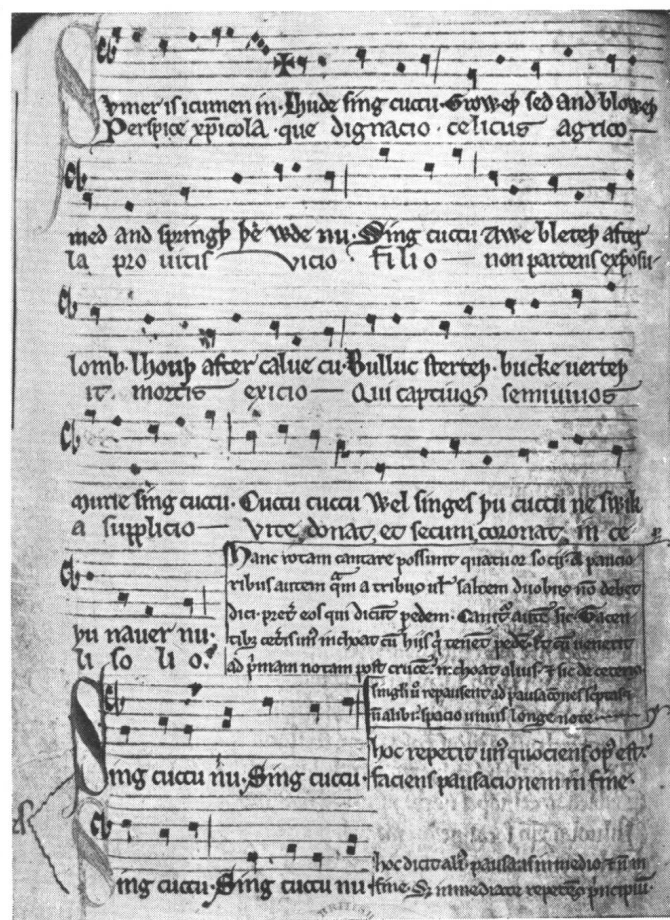 Svmer is icumen in· Lhude sing cuccu· Groweþ sed and bloweþ
Perspice xp̄icola· que dignacio· celicus agrico—
med and springþ þe wde nu· Sing cuccu Awe bleteþ after
la pro uitis vicio filio— non parcens exposu—
lomb· lhouþ after calue cu· Bulluc sterteþ· bucke uerteþ
it· mortis exicio— Qui captiuos semiuiuos
murie sing cuccu· Cuccu cuccu Wel singes þu cuccu ne swik
a supplicio— Vite donat, et secum coronat, in ce
þu nauer nu·
li so li o·
Hanc rotam cantare possunt quatuor socij· A paucio
ribus autem qͣm a tribus uł saltem duobus nō debet
dici· preter eos qui dicūt pedem· Canitur autē sic· Tacen
tibꝫ ceteris unus inchoat cū hijs qͥ tenēt pedē· Et cū uenerit
ad pͥmam notam post crucē· inchoat alius· ⁊ sic de ceteris
singli ū repausent ad pausaciones scriptas ⁊
nō alibi· spacio unius longe note—
Sing cuccu nu· Sing cuccu·
hoc repetit unꝰ quociens opꝰ est·
faciens pausacionem in fine·
Sing cuccu· Sing cuccu nu
hoc dicit aliꝰ pausans in medio· ⁊ nō in
fine· Sꝫ immediate repetens pͥncipiū·
BRITISH